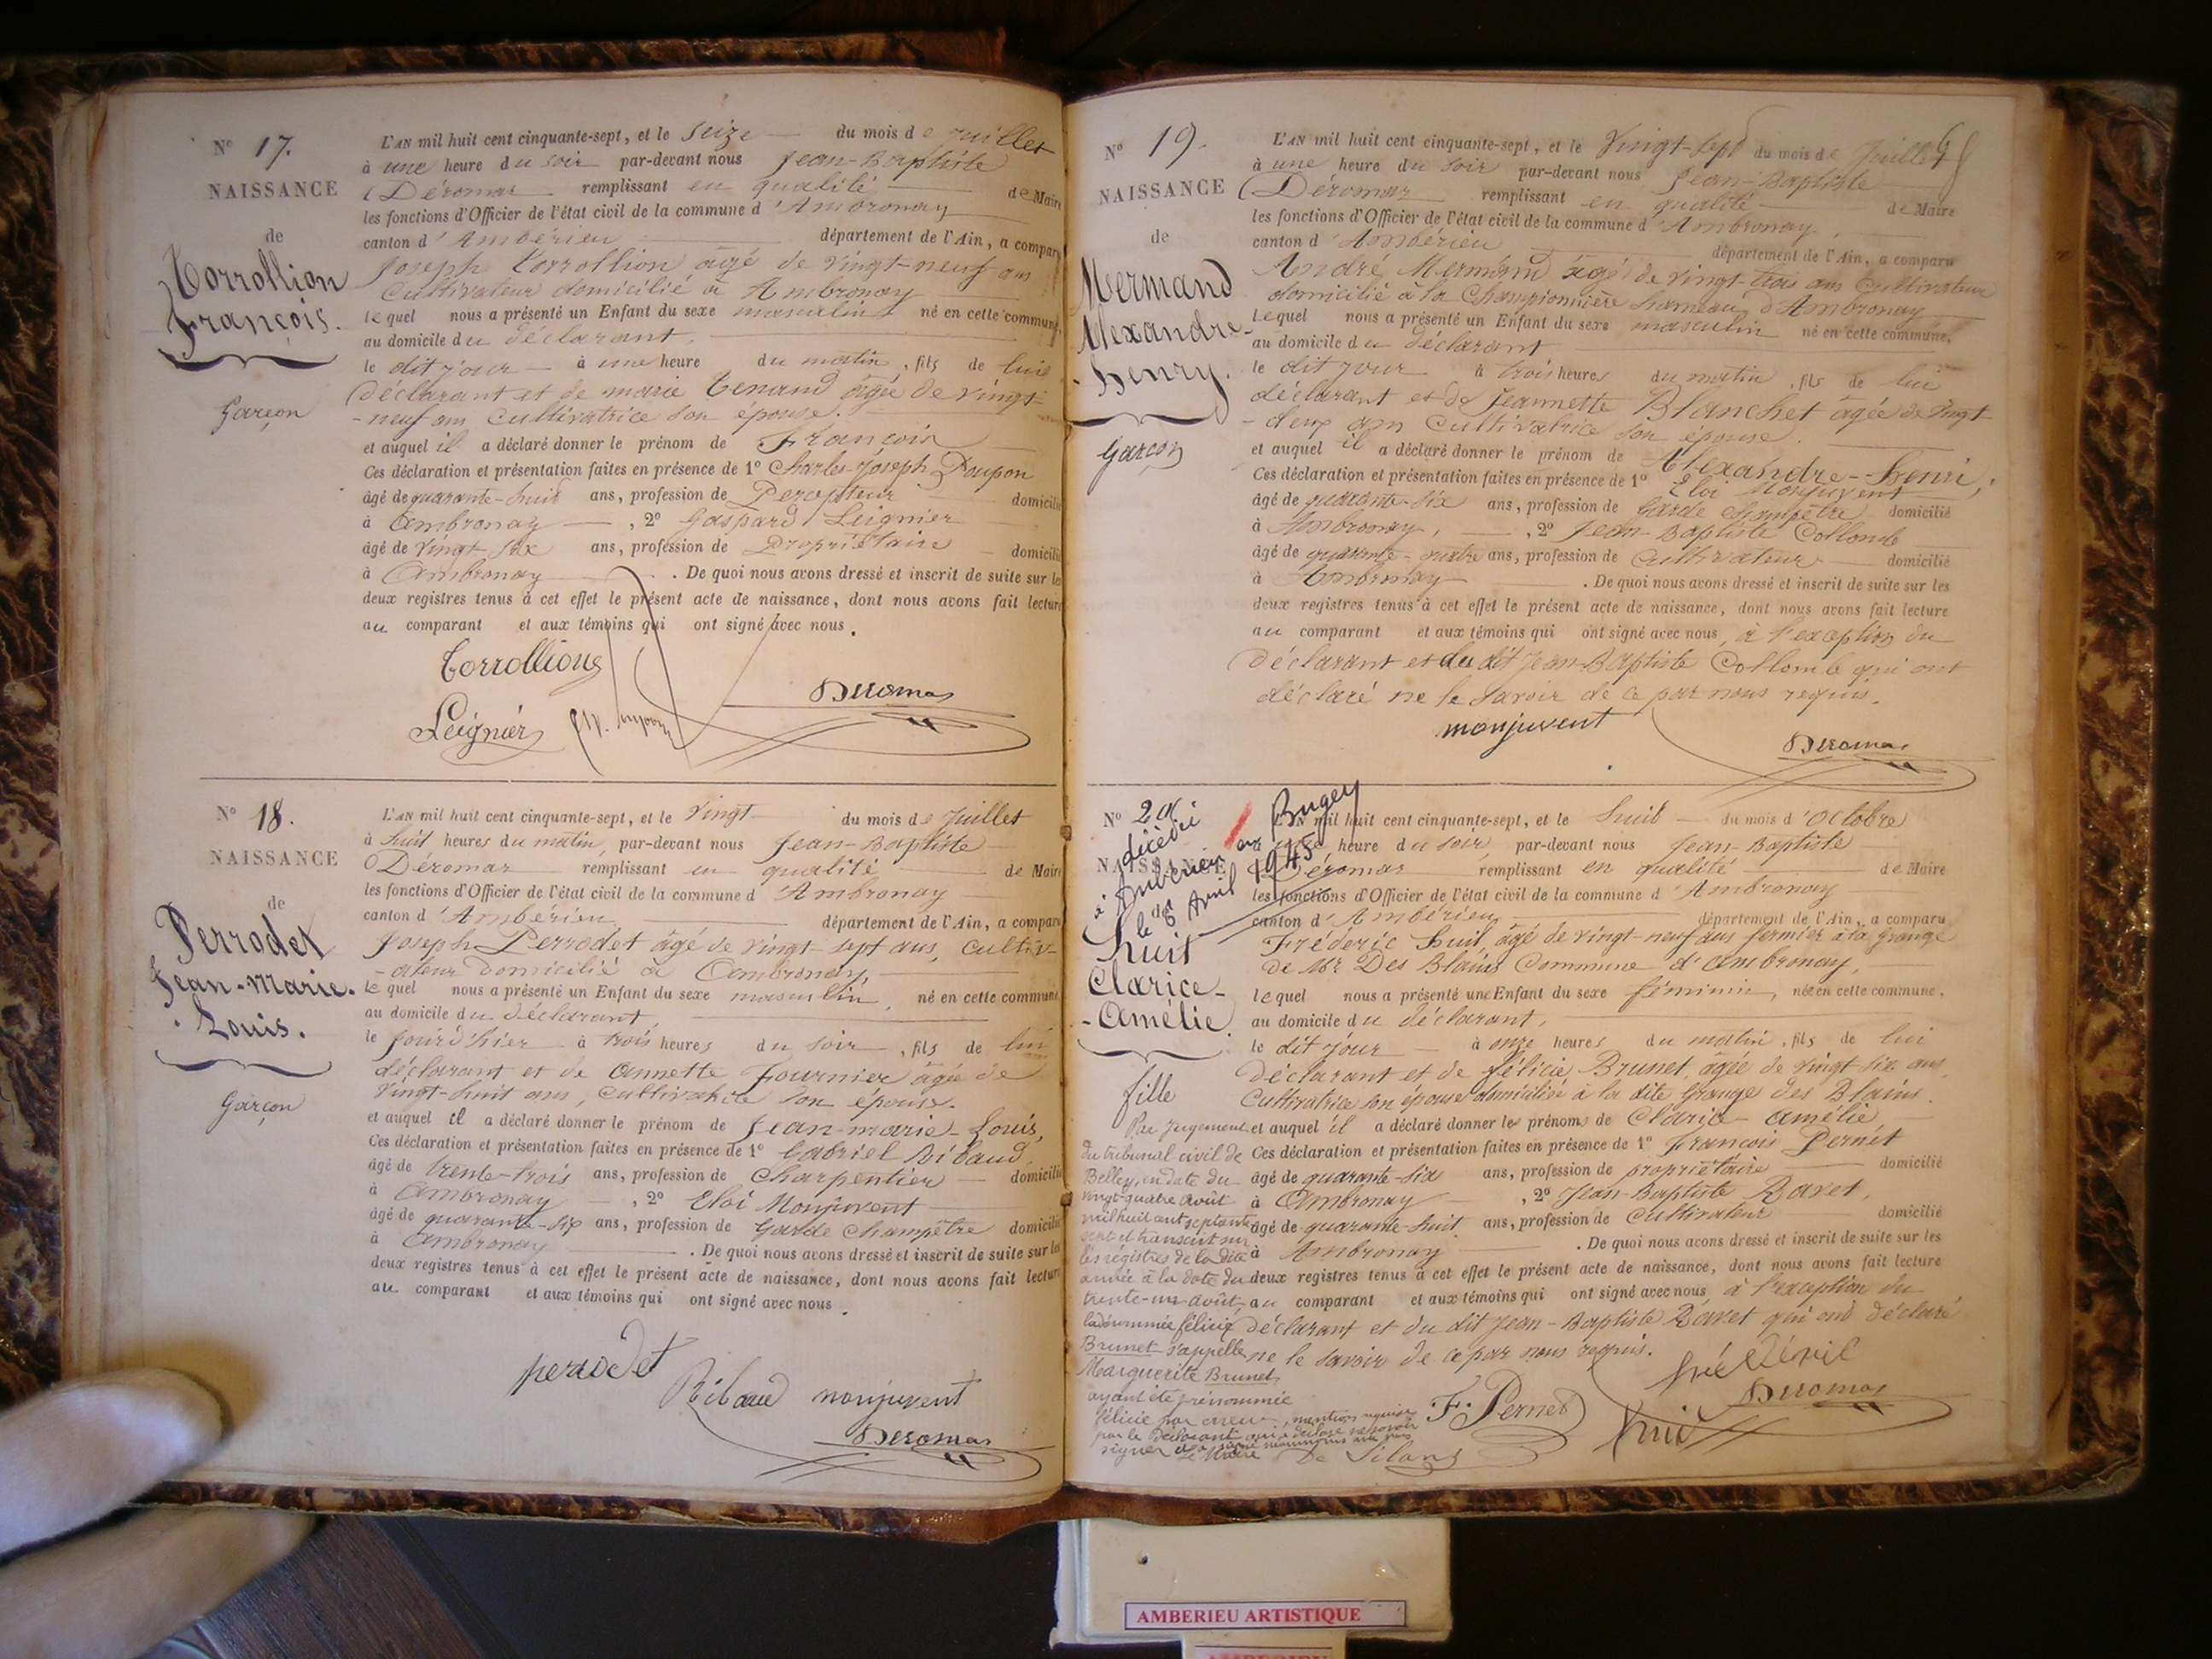 N° 17.
NAISSANCE
de
Torrollion
François.
Garçon
L'AN mil huit cent cinquante-sept, et le seize du mois de juillet
à une heure du soir par-devant nous Jean-Baptiste
Déromas remplissant en qualité de Maire
les fonctions d'Officier de l'état civil de la commune d'Ambronay
canton d'Ambérieu département de l'Ain, a comparu
Joseph Torrollion âgé de vingt-neuf ans
Cultivateur domicilié à Ambronay
lequel nous a présenté un Enfant du sexe masculin né en cette commune,
au domicile du déclarant,
le dit jour à une heure du matin, fils de lui
déclarant et de marie Tenand âgée de vingt
-neuf ans Cultivatrice son épouse.
et auquel il a déclaré donner le prénom de François
Ces déclaration et présentation faites en présence de 1° Charles-Joseph Poupon
âgé de quarante-huit ans, profession de Percepteur domicilié
à Ambronay, 2° Gaspard Leignier
âgé de vingt-six ans, profession de Propriétaire domicilié
à Ambronay. De quoi nous avons dressé et inscrit de suite sur les
deux registres tenus à cet effet le présent acte de naissance, dont nous avons fait lecture
au comparant et aux témoins qui ont signé avec nous.
Torrollion
Deromas
Leignier
N° 18.
NAISSANCE
de
Perrodet
Jean-Marie-
Louis.
Garçon
L'AN mil huit cent cinquante-sept, et le vingt du mois de Juillet
à huit heures du matin, par-devant nous Jean-Baptiste
Déromas remplissant en qualité de Maire
les fonctions d'Officier de l'état civil de la commune d'Ambronay
canton d'Ambérieu département de l'Ain, a comparu
Joseph Perrodet âgé de vingt-sept ans, cultiv-
-ateur domicilié à Ambronay,
lequel nous a présenté un Enfant du sexe masculin, né en cette commune,
au domicile du déclarant,
le jour d'hier à trois heures du soir, fils de lui
déclarant et de Annette Fournier âgée de
vingt-huit ans, cultivatrice son épouse.
et auquel il a déclaré donner le prénom de Jean-marie-Louis,
Ces déclaration et présentation faites en présence de 1° Gabriel Ribaud,
âgé de trente-trois ans, profession de Charpentier domicilié
à Ambronay, 2° Eloi Monjuvent
âgé de quarante-six ans, profession de Garde Champêtre domicilié
à Ambronay. De quoi nous avons dressé et inscrit de suite sur les
deux registres tenus à cet effet le présent acte de naissance, dont nous avons fait lecture
au comparant et aux témoins qui ont signé avec nous.
perrodet
Ribaud monjuvent
Deromas
N° 19.
NAISSANCE
de
Mermand
Alexandre-
-Henry.
Garçon
L'AN mil huit cent cinquante-sept, et le Vingt-sept du mois de Juillet
à une heure du soir par-devant nous Jean-Baptiste
Déromas remplissant en qualité de Maire
les fonctions d'Officier de l'état civil de la commune d'Ambronay,
canton d'Ambérieu département de l'Ain, a comparu
André Mermand âgé de vingt-trois ans Cultivateur
domicilié à la Championnière hameau d'Ambronay
lequel nous a présenté un Enfant du sexe masculin né en cette commune,
au domicile du déclarant
le dit jour à trois heures du matin, fils de lui
déclarant et de Jeannette Blanchet âgée de vingt
-deux ans Cultivatrice son épouse.
et auquel il a déclaré donner le prénom de Alexandre-Henri,
Ces déclaration et présentation faites en présence de 1° Eloi Monjuvent
âgé de quarante-six ans, profession de Garde champêtre domicilié
à Ambronay, 2° Jean-Baptiste Collomb
âgé de quarante-quatre ans, profession de Cultivateur domicilié
à Ambronay. De quoi nous avons dressé et inscrit de suite sur les
deux registres tenus à cet effet le présent acte de naissance, dont nous avons fait lecture
au comparant et aux témoins qui ont signé avec nous, à l'exception du
déclarant et du dit Jean-Baptiste Collomb qui ont
déclaré ne le savoir de ce par nous requis.
monjuvent
Deromas
N° 20
NAISSANCE
décédée
à Ambérieu en Bugey
le 18 Avril 1945
Huit
Clarice-
-Amélie
fille
L'AN mil huit cent cinquante-sept, et le huit du mois d'Octobre
à une heure du soir, par-devant nous Jean-Baptiste
Déromas remplissant en qualité de Maire
les fonctions d'Officier de l'état civil de la commune d'Ambronay
canton d'Ambérieu département de l'Ain, a comparu
Fréderic Huit, âgé de vingt-neuf ans fermier à la Grange
de Mr Des Blains Commune d'Ambronay,
lequel nous a présenté une Enfant du sexe féminin, née en cette commune,
au domicile du déclarant,
le dit jour à onze heures du matin, fils de lui
déclarant et de félicie Brunet, âgée de vingt six ans,
Cultivatrice son épouse domiciliée à la dite Grange des Blains.
et auquel il a déclaré donner les prénoms de Clarice-Amélie
Ces déclaration et présentation faites en présence de 1° François Pernet
âgé de quarante-six ans, profession de propriétaire domicilié
à Ambronay, 2° Jean-Baptiste Ravet,
âgé de quarante-huit ans, profession de Cultivateur domicilié
à Ambronay. De quoi nous avons dressé et inscrit de suite sur les
deux registres tenus à cet effet le présent acte de naissance, dont nous avons fait lecture
au comparant et aux témoins qui ont signé avec nous, à l'exception du
déclarant et du dit Jean-Baptiste Ravet qui ont déclaré
ne le savoir de ce par nous requis.
Par jugement
du tribunal civil de
Belley, en date du
vingt-quatre Août
mil huit cent septante
sept et transcrit sur
les régistres de la dite
année à la date du
trente-un-Août,
la dénommée félicie
Brunet s'appelle
Marguerite Brunet
ayant été prénommée
félicie par erreur, mention requise
par le Déclarant qui a déclaré ne savoir
signer
Le Maire De Silans
F. Pernet
Deromas
Huit
AMBERIEU ARTISTIQUE
AMBERIEU